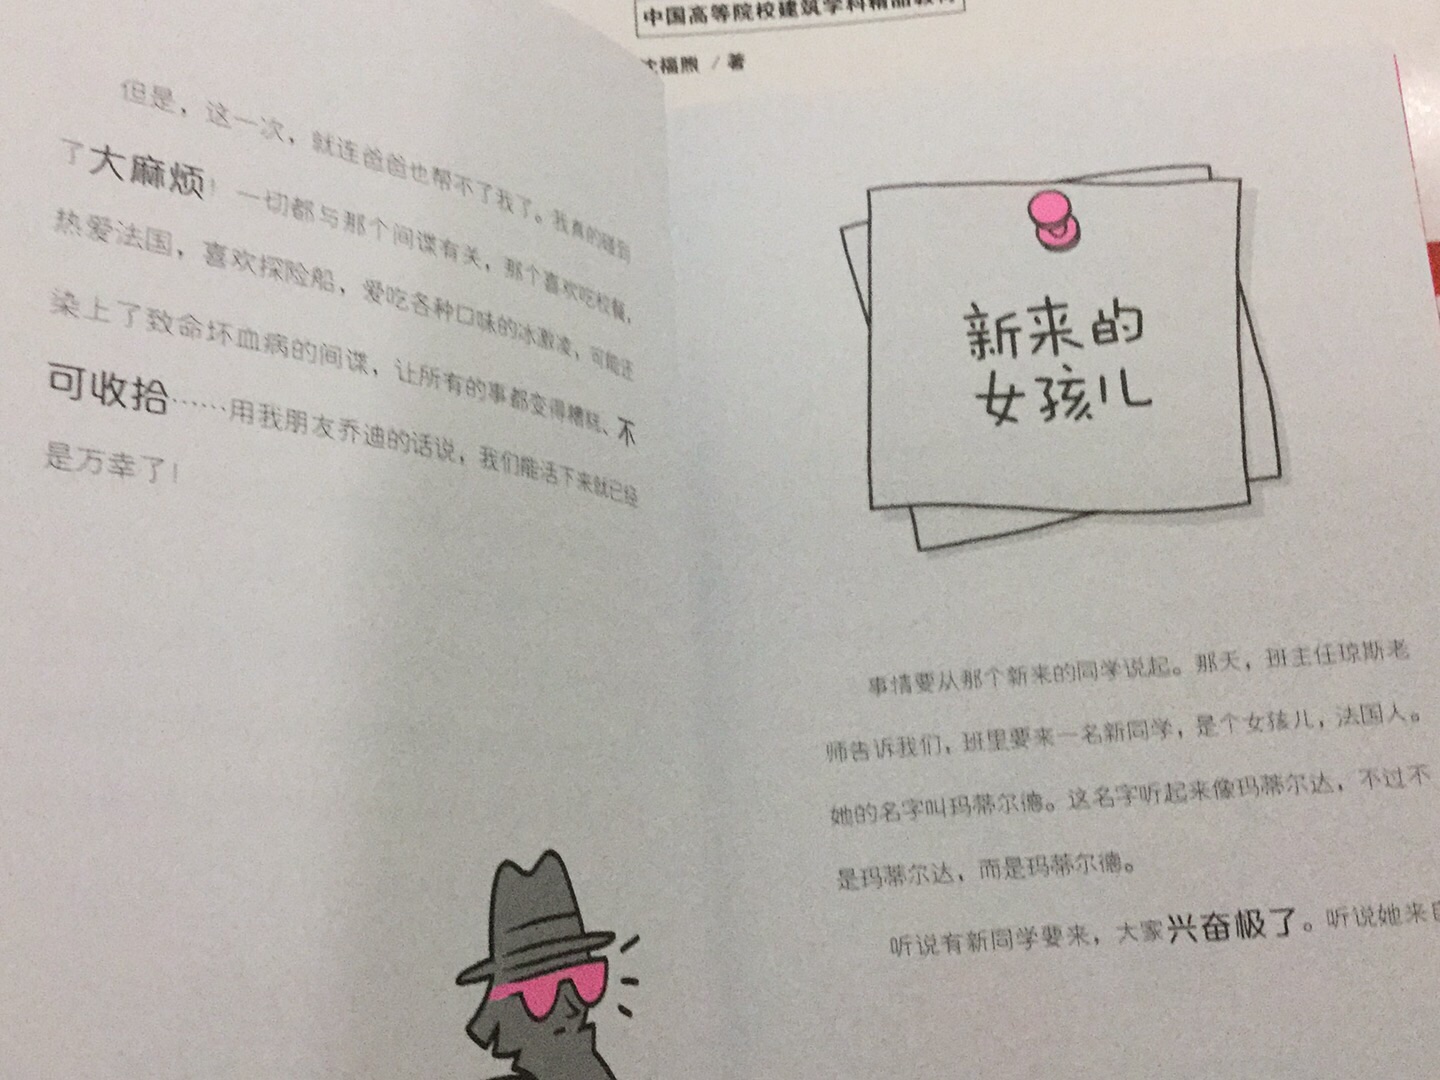 中国高等院校建筑学科精品教材
沈福煦 / 著
但是，这一次，就连爸爸也帮不了我了。我真的碰到
了大麻烦！一切都与那个间谍有关，那个喜欢吃校餐，
热爱法国，喜欢探险船，爱吃各种口味的冰激凌，可能还
染上了致命坏血病的间谍，让所有的事都变得糟糕、不
可收拾……用我朋友乔迪的话说，我们能活下来就已经
是万幸了！
新来的
女孩儿
事情要从那个新来的同学说起。那天，班主任琼斯老
师告诉我们，班里要来一名新同学，是个女孩儿，法国人。
她的名字叫玛蒂尔德。这名字听起来像玛蒂尔达，不过不
是玛蒂尔达，而是玛蒂尔德。
听说有新同学要来，大家兴奋极了。听说她来自